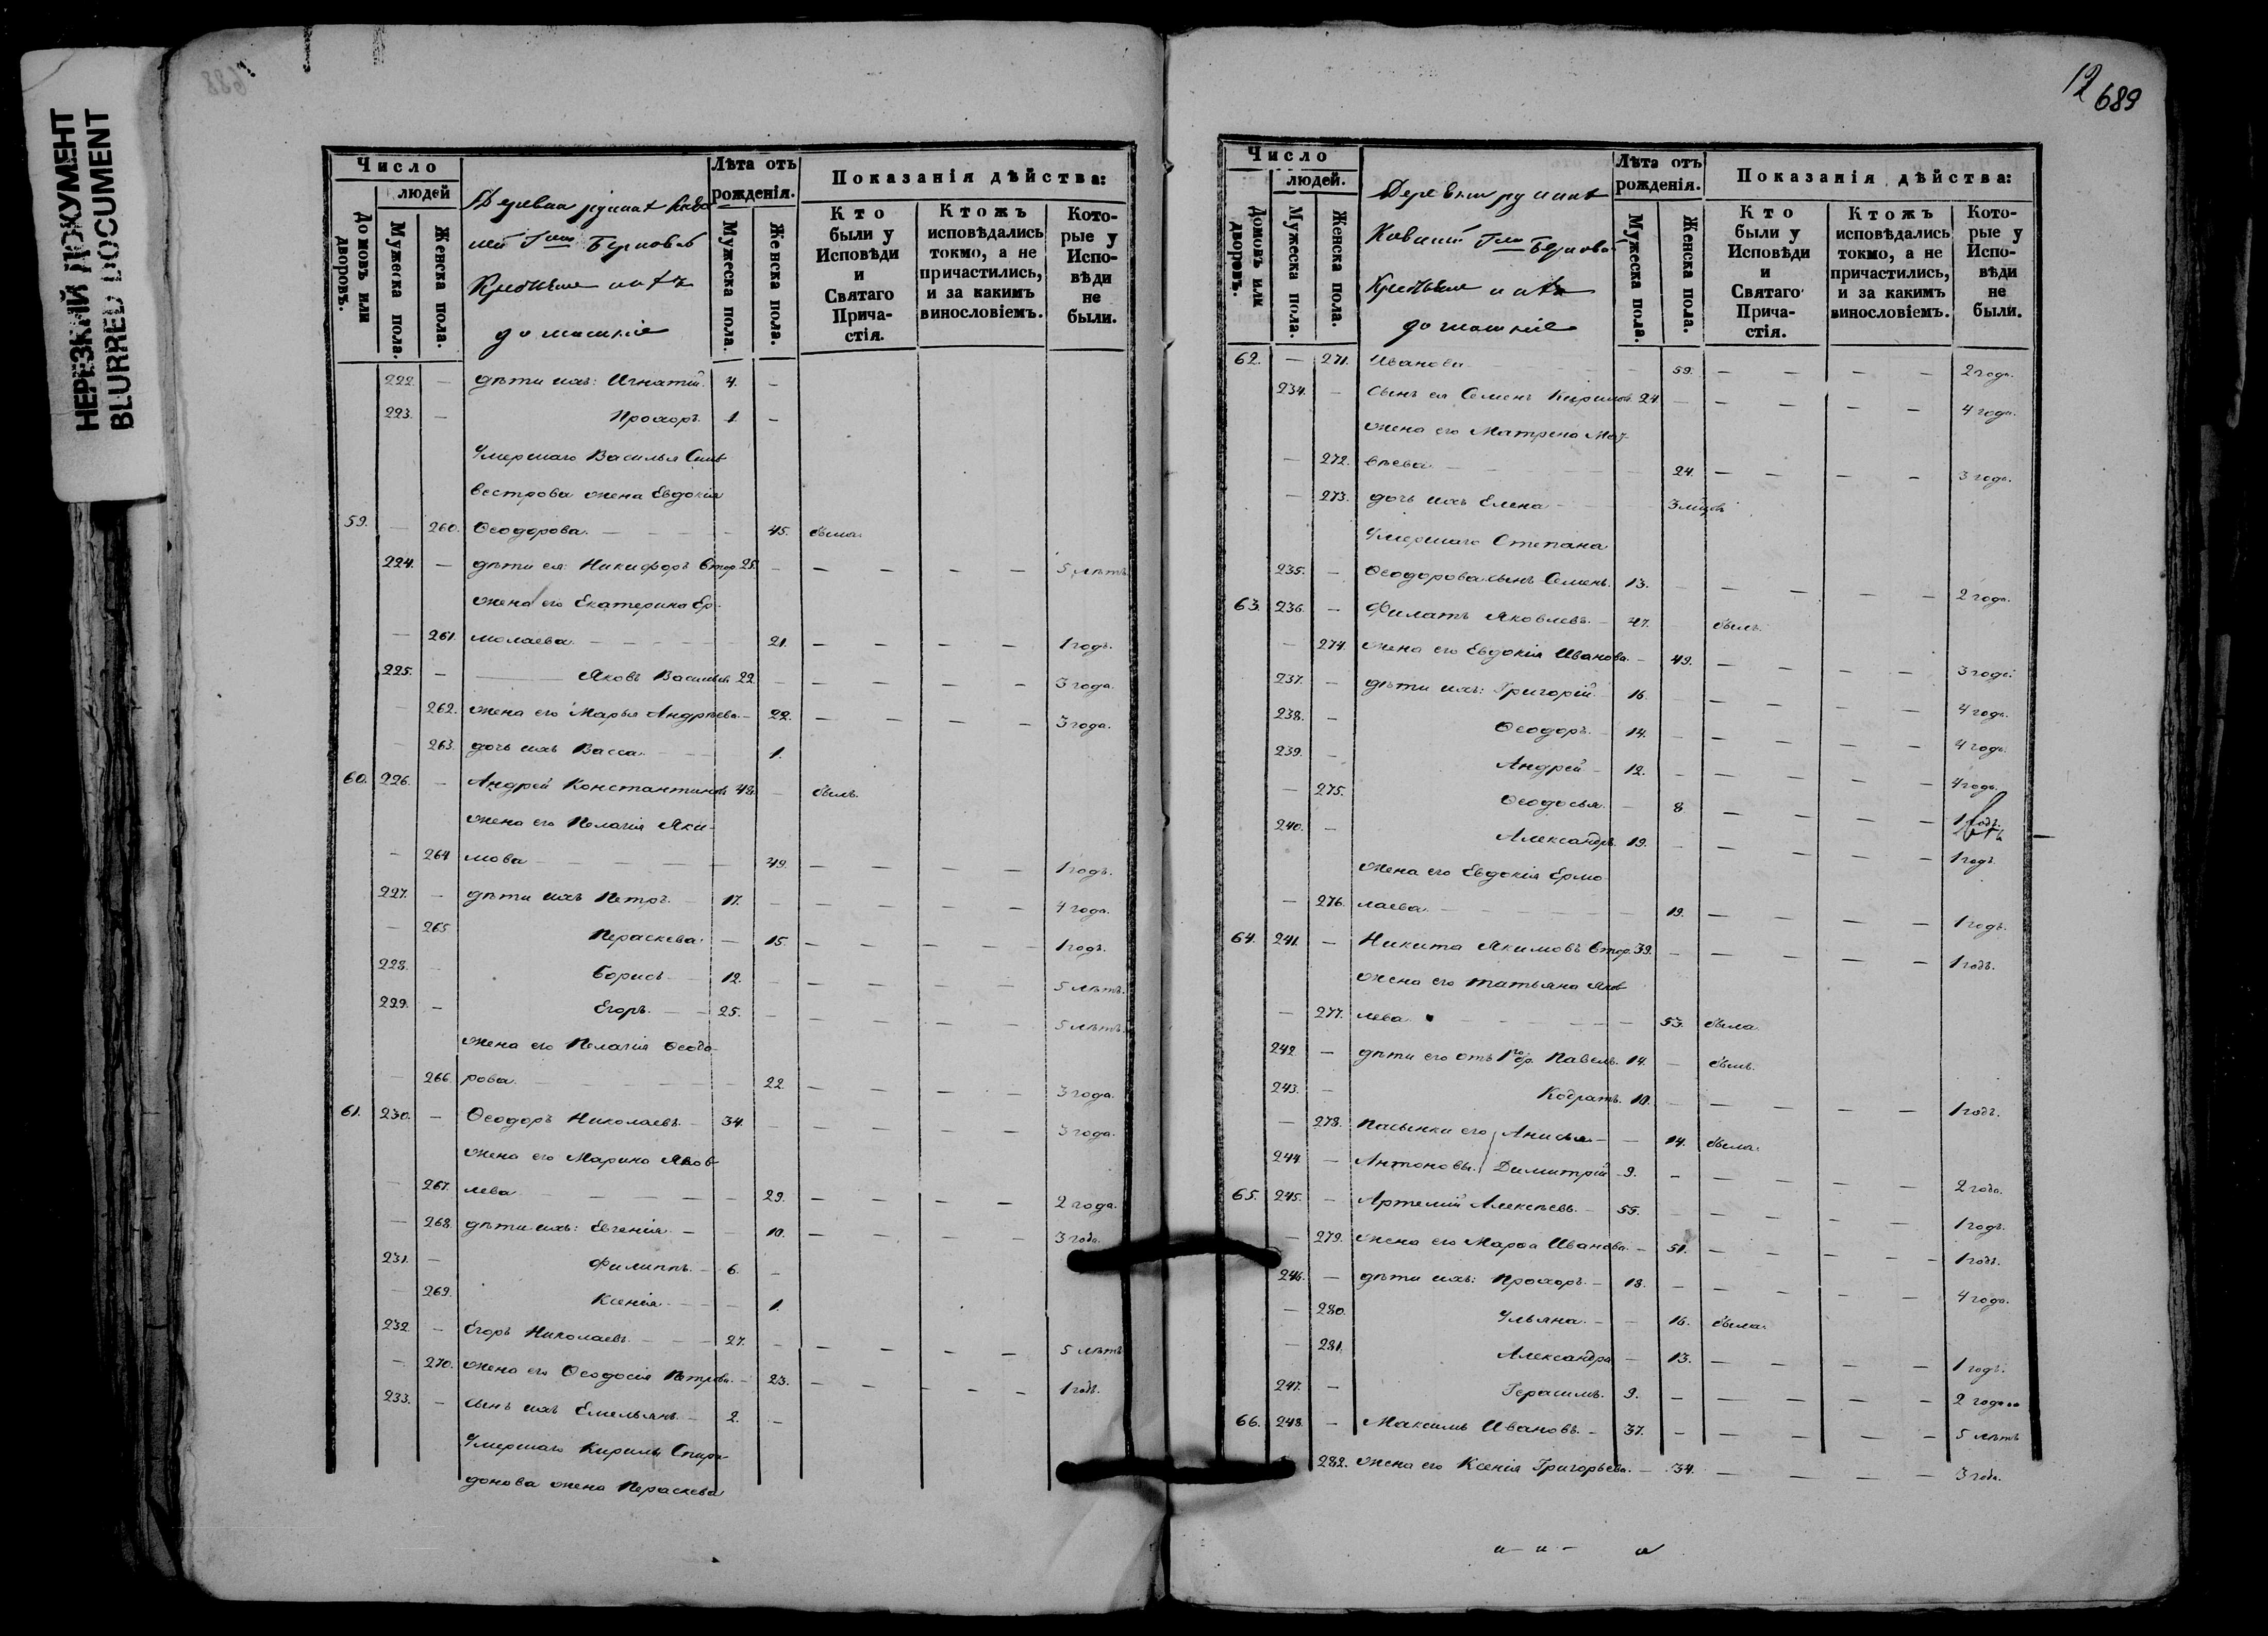 НЕРЕЗКИЙ ДОКУМЕНТ
BLURRED DOCUMENT
688
Число
людей
Домовъ или дворовъ.
Мужеска пола.
Женска пола.
Деревни
Бурнова
домашніе
Лѣта отъ рожденія.
Мужеска пола.
Женска пола.
Показанія дѣйства:
Кто были у Исповѣди и Святаго Причастія.
Ктожъ исповѣдались токмо, а не причастились, и за какимъ винословіемъ.
Которые у Исповѣди не были.
222. — дѣти ихъ: Игнатій. 4. —
223. — Прохоръ. 1. —
Умершаго Василья Силь
вестрова жена Евдокія
59. — 260. Ѳеодорова. — 45. была.
224. — дѣти ея: Никифоръ Втор. 25. — — — — — 5 лѣтъ.
жена его Екатерина Ер-
— 261. молаева. — 21. — — — — 1 годъ.
225. — — Яковъ Васильевъ 22. — — — — — 3 года.
— 262. жена его Марья Андрѣева. — 22. — — — — 3 года.
— 263. дочь ихъ Васса. — 1.
60. 226. — Андрей Константиновъ 48. — былъ.
жена его Пелагія Яки-
— 264 мова — 49. — — — — 1 годъ.
227. — дѣти ихъ Петръ. — 17. — — — — — 4 года.
— 265 Параскева. — 15. — — — — 1 годъ.
228. — Борисъ — 12. — — — — — 5 лѣтъ.
229. — Егоръ. — 25. — — — — — 5 лѣтъ.
жена его Пелагія Ѳеодо-
— 266. рова. — 22 — — — — 3 года.
61. 230. — Ѳеодоръ Николаевъ. — 34. — — — — — 3 года.
жена его Марина Яков-
— 267. лева — 29. — — — — 2 года.
— 268. дѣти ихъ: Евгенія. — 10. — — — — 3 года.
231. — Филиппъ. — 6. —
— 269. Ксенія. — 1.
232. — Егоръ Николаевъ. — 27. — — — — — 5 лѣтъ
— 270. жена его Ѳеодосія Петрова. — 23. — — — — 1 годъ.
233. — сынъ ихъ Емельянъ. — 2. —
Умершаго Кирила Спири-
донова жена Параскева
12
689
Число
людей.
Домовъ или дворовъ.
Мужеска пола.
Женска пола.
Деревни
домашніе
Лѣта отъ рожденія.
Мужеска пола.
Женска пола.
Показанія дѣйства:
Кто были у Исповѣди и Святаго Причастія.
Ктожъ исповѣдались токмо, а не причастились, и за какимъ винословіемъ.
Которые у Исповѣди не были.
62. — 271. Иванова — 59. — — — — 2 года.
234. — Сынъ ея Семенъ Кириловъ. 24 — — — — — 4 года.
жена его Матрена Мат-
— 272. вѣева. — 24. — — — — 3 года.
— 273. дочь ихъ Елена — 3 мѣсяц.
Умершаго Степана
235. — Ѳеодорова сынъ Семенъ. 13. — — — — — 2 года.
63. 236. — Филатъ Яковлевъ. — 47. былъ.
— 274. жена его Евдокія Иванова. — 49. — — — — 3 года.
237. — дѣти ихъ: Григорій. 16. — — — — — 4 года.
238. — Ѳеодоръ. — 14. — — — — — 4 года.
239. — Андрей — 12. — — — — — 4 года.
— 275. Ѳеодосья. — 8 — — — — 1 годъ.
240. — Александръ. 19. — — — — — 1 годъ.
жена его Евдокія Ермо
— 276. лаева. — 19. — — — — 1 годъ.
64. 241. — Никита Якимовъ Втор. 39. — — — — — 1 годъ.
жена его Татьяна Яков
— 277. лева. — 53. была.
242. — дѣти его отъ 1го бр. Павелъ. 14. — былъ.
243. — Кодратъ. 10. — — — — — 1 годъ.
— 278. Пасынки его Анисья — 14. была.
244. — Антоновы. Димитрій — 9. — — — — — 2 года.
65. 245. — Артемій Алексѣевъ. — 55. — — — — — 1 годъ.
— 279. жена его Марѳа Иванова. — 51. — — — — 1 годъ.
246. — дѣти ихъ: Прохоръ. — 18. — — — — — 4 года.
— 280. Ульяна. — 16. была.
— 281. Александра — 13. — — — — 1 годъ.
247. — Герасимъ. 9. — — — — — 2 года
66. 248. — Максимъ Ивановъ. — 37. — — — — — 5 лѣтъ
282. жена его Ксенія Григорьева. — 34. — — — — 3 года.